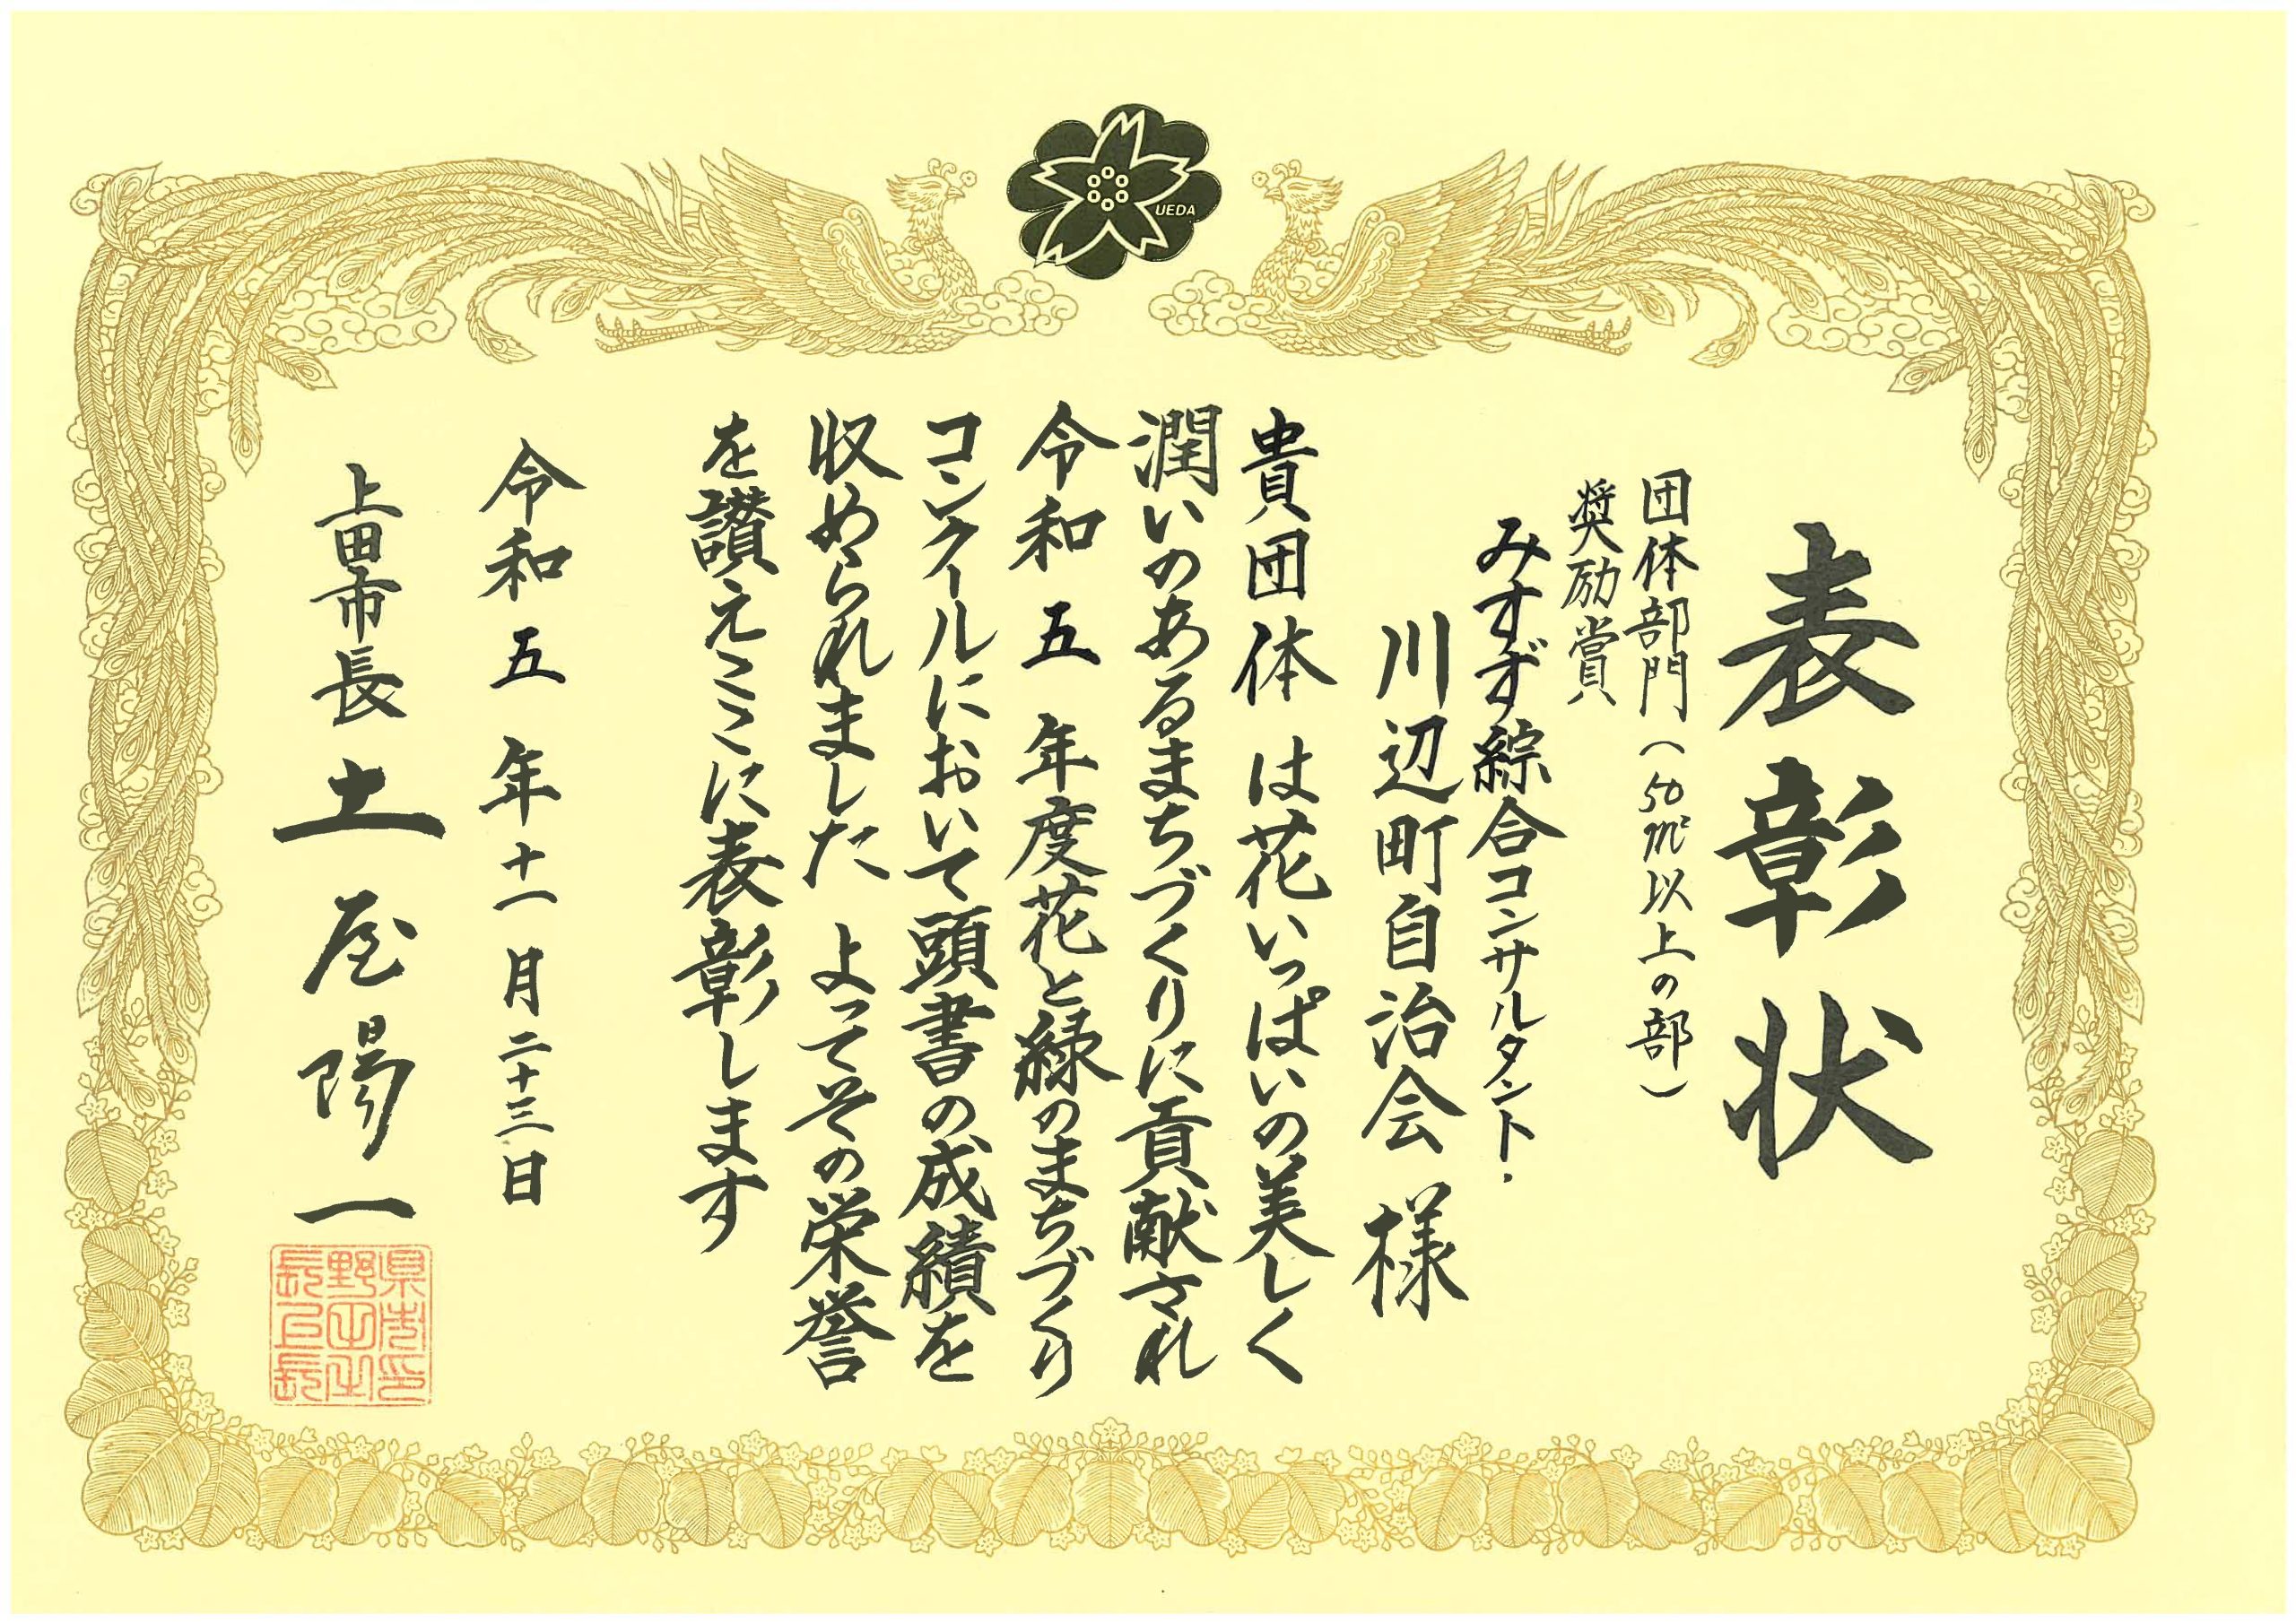 UEDA
表彰状
団体部門(50㎡以上の部)
奨励賞
みすず綜合コンサルタント・
川辺町自治会 様
貴団体は花いっぱいの美しく
潤いのあるまちづくりに貢献され
令和五年度花と緑のまちづくり
コンクールにおいて頭書の成績を
収められました よってその栄誉
を讃えここに表彰します
令和五年十一月二十三日
上田市長 土屋陽一